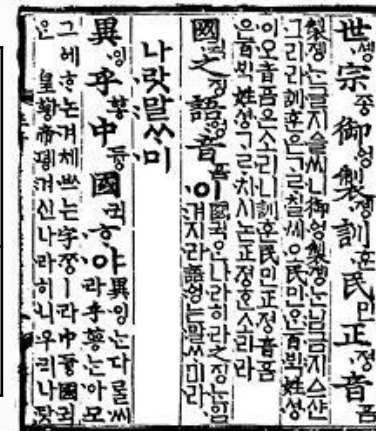 世솅宗종御ᅌᅥᆼ製졩訓훈民민正져ᇰ音ᅙᅳᆷ
製졩ᄂᆞᆫ글지ᅀᅳᆯ씨니御ᅌᅥᆼ製졩ᄂᆞᆫ님금지ᅀᅳ샨
그리라訓훈은ᄀᆞᄅᆞ칠씨오民민ᄋᆞᆫ百ᄇᆡᆨ姓셔ᇰ
이오音ᅙᅳᆷ은소리니訓훈民민正져ᇰ音ᅙᅳᆷ
은百ᄇᆡᆨ姓셔ᇰᄀᆞᄅᆞ치시논正져ᇰᄒᆞᆫ소리라
國귁之징語ᅌᅥᆼ音ᅙᅳᆷ이
國귁ᄋᆞᆫ나라히라之징ᄂᆞᆫ입
겨지라語ᅌᅥᆼᄂᆞᆫ말ᄊᆞ미라
나랏말ᄊᆞ미
異잉乎ᅘᅩᆼ中듀ᇰ國귁ᄒᆞ야
異잉ᄂᆞᆫ다ᄅᆞᆯ씨
라乎ᅘᅩᆼᄂᆞᆫ아모
그ᅌᅦᄒᆞ논겨체ᄡᅳ는字ᄍᆞᆼㅣ라中듀ᇰ國귁
ᄋᆞᆫ皇ᅘᅪᇰ帝뎽겨신나라히니우리나랏